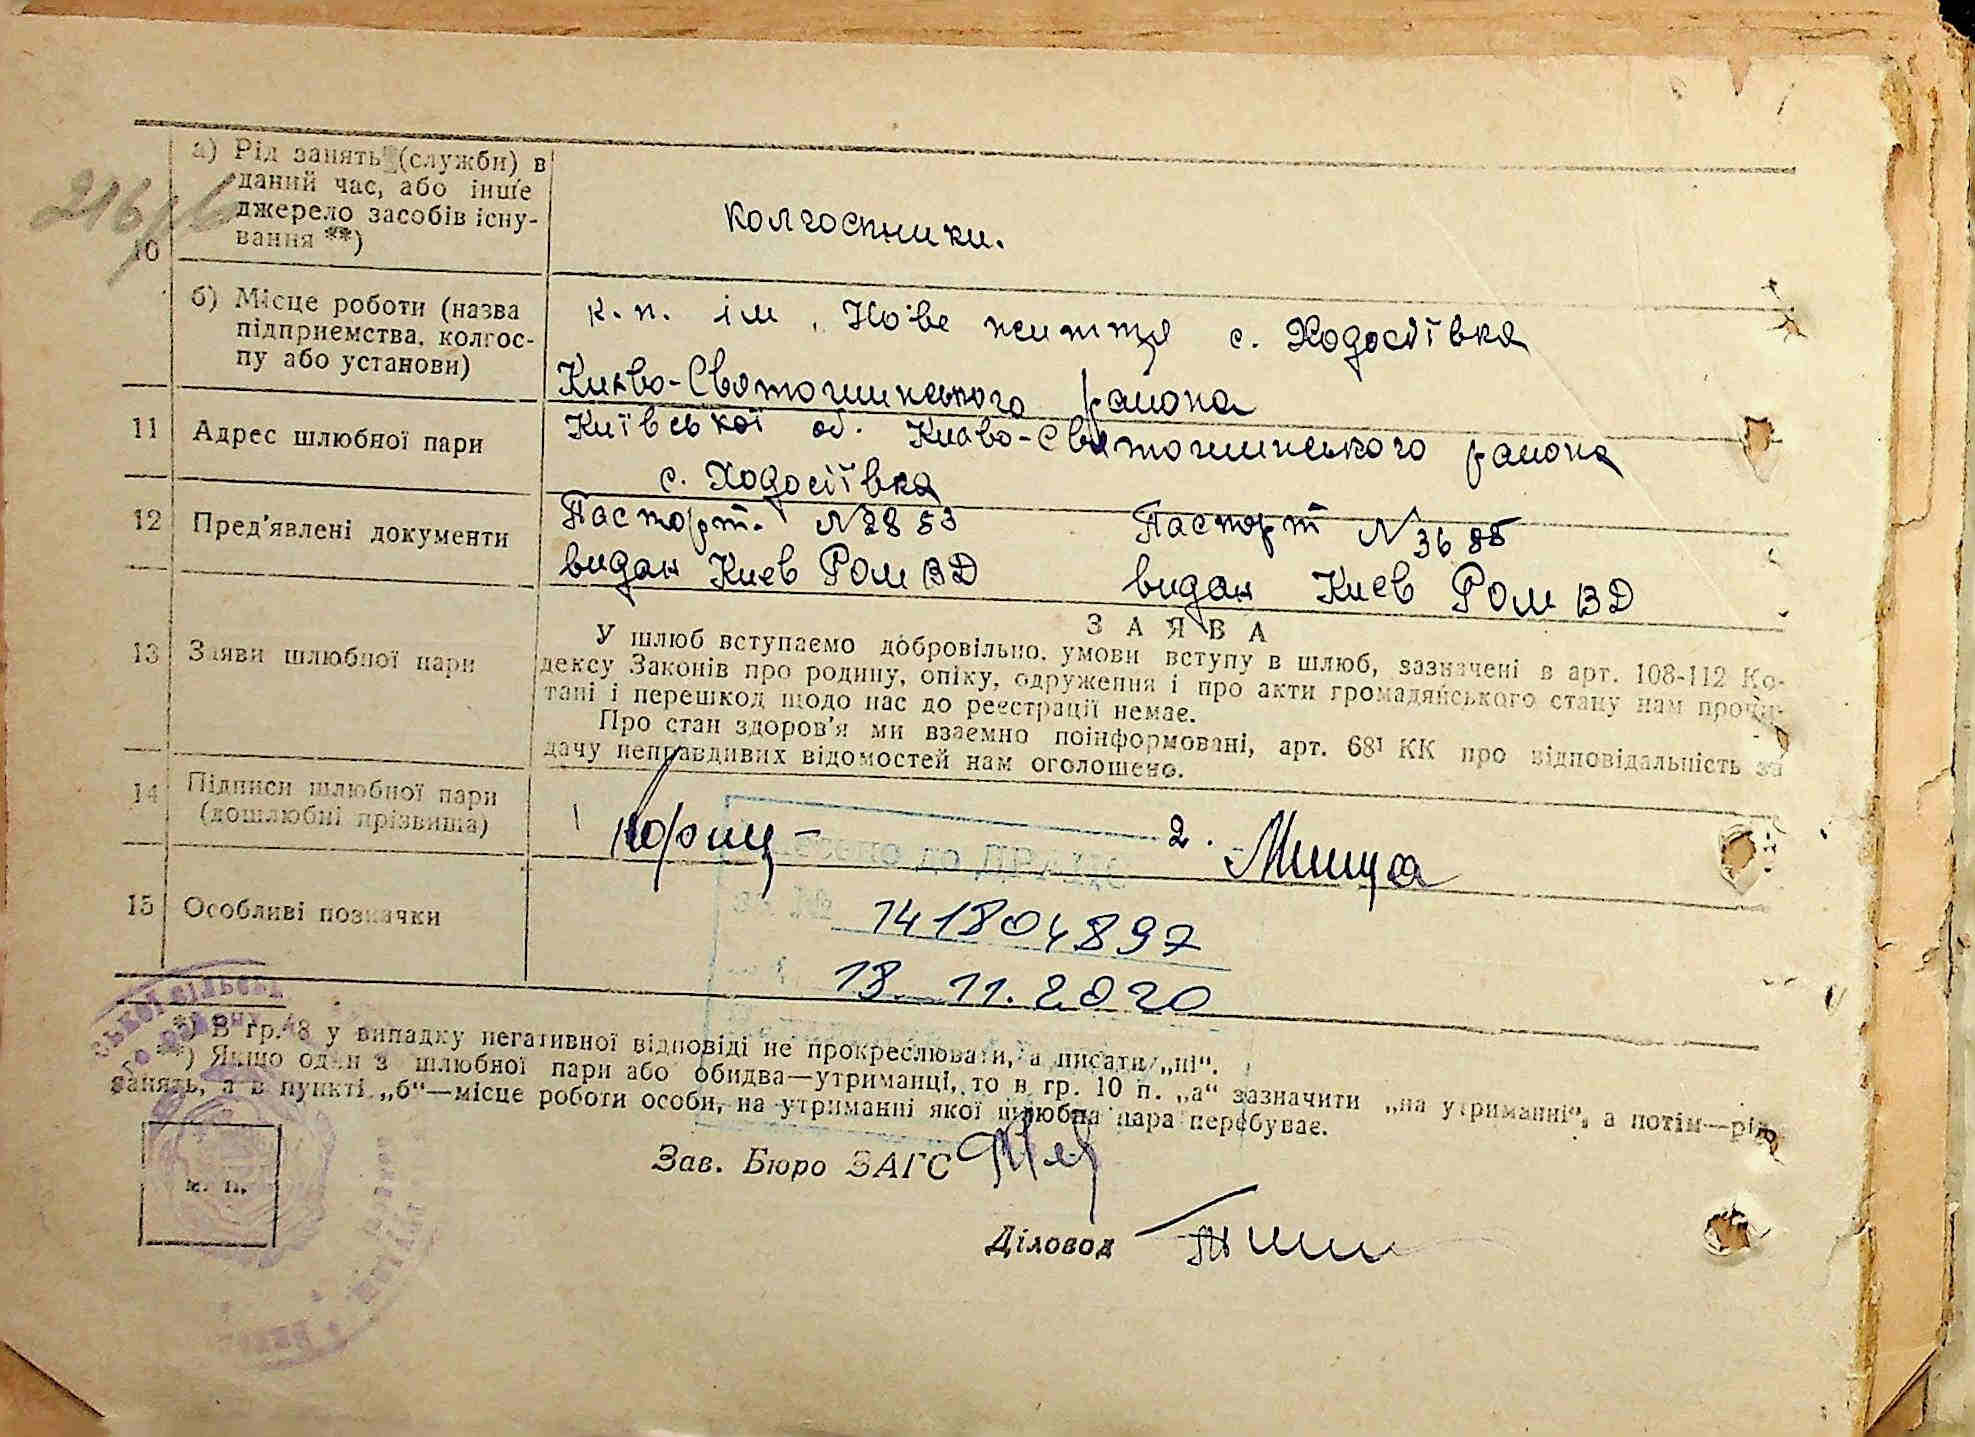 а) Рід занять (служби) в
даний час, або інше
джерело засобів існу-
вання **)
колгоспники.
216
10
б) Місце роботи (назва
підприємства, колгос-
пу або установи)
к.п. ім. Нове життя с. Ходосіївка
Києво-Святошинського району
11 Адрес шлюбної пари
Київської об. Києво-Святошинського району
с. Ходосіївка
12 Пред'явлені документи
Паспорт № 2853 Паспорт № 3688
видан Киев Ром ВД видан Киев Ром ВД
13 Заяви шлюбної пари
ЗАЯВА
У шлюб вступаємо добровільно. умови вступу в шлюб, зазначені в арт. 108-112 Ко-
дексу Законів про родину, опіку, одруження і про акти громадянського стану нам прочи-
тані і перешкод щодо нас до реєстрації немає.
Про стан здоров'я ми взаємно поінформовані, арт. 68¹ КК про відповідальність за
дачу неправдивих відомостей нам оголошено.
14 Підписи шлюбної пари
(дошлюбні прізвища)
1 2.
до ДРАЦС
за №
15 Особливі позначки
141804897
18.11.2020
*) В гр. 8 у випадку негативної відповіді не прокреслювати, а писати „ні“.
**) Якщо один з шлюбної пари або обидва—утриманці, то в гр. 10 п. „а“ зазначити „на утриманні“, а потім—рід
занять, а в пункті „б“—місце роботи особи, на утриманні якої шлюбна пара перебуває.
Зав. Бюро ЗАГС
м. п.
Діловод